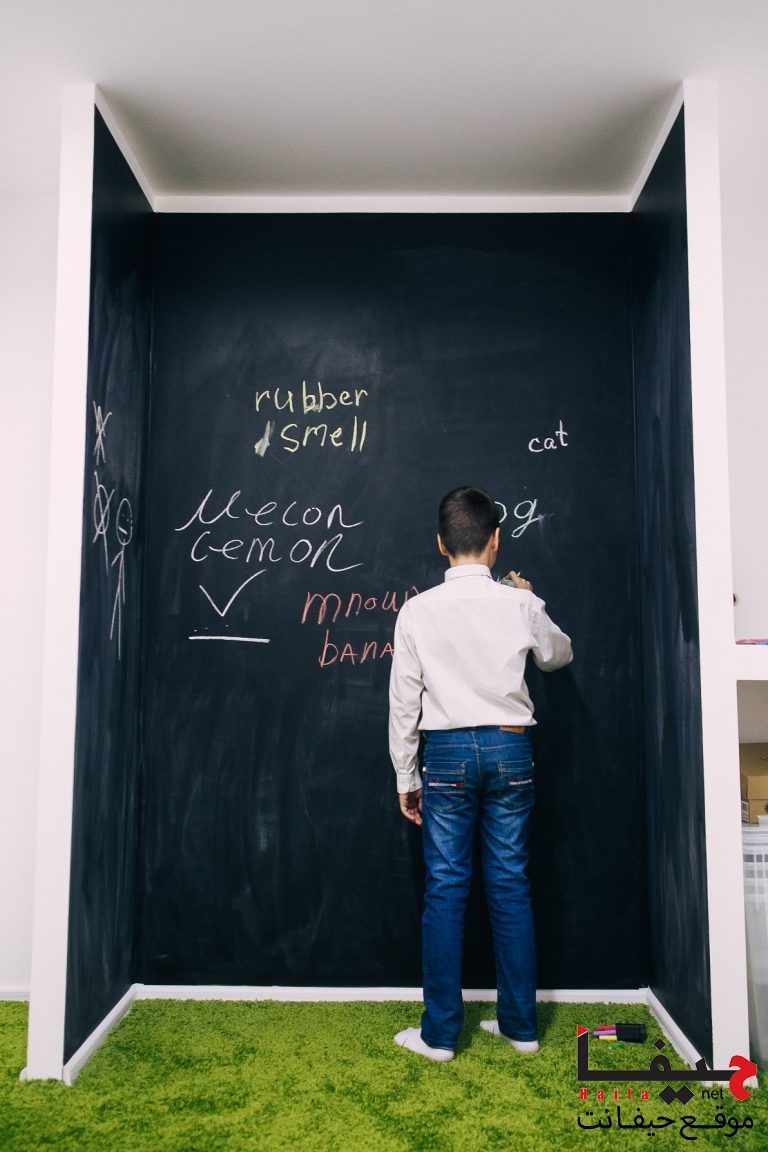 rubber
smell
cat
og
Mecon
Gemon
mnou
bana
حيفا
Haifa net
موقع حيفانت